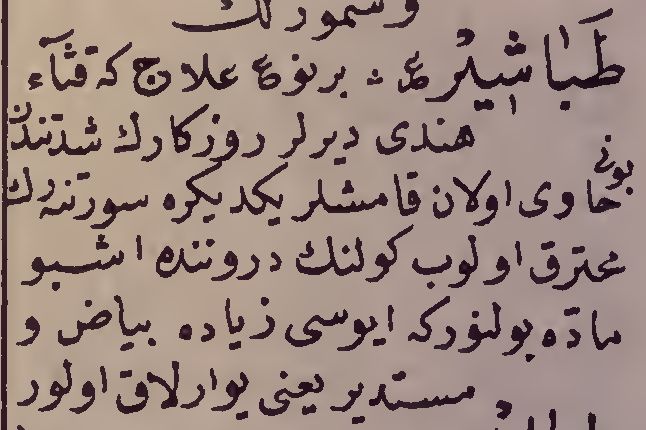 وسمور لك
طَبَاشِيْر ع : بر نوع علاج كه قثّآء
هندى ديرلر روزكارك شدّتندن
بونى حاوى اولان قامشلر يكديكره سورتنه رك
محترق اولوب كولنك دروننده اشبو
مادّه بولنور كه ايوسى زياده بياض و
مستدير يعنى يوارلاق اولور